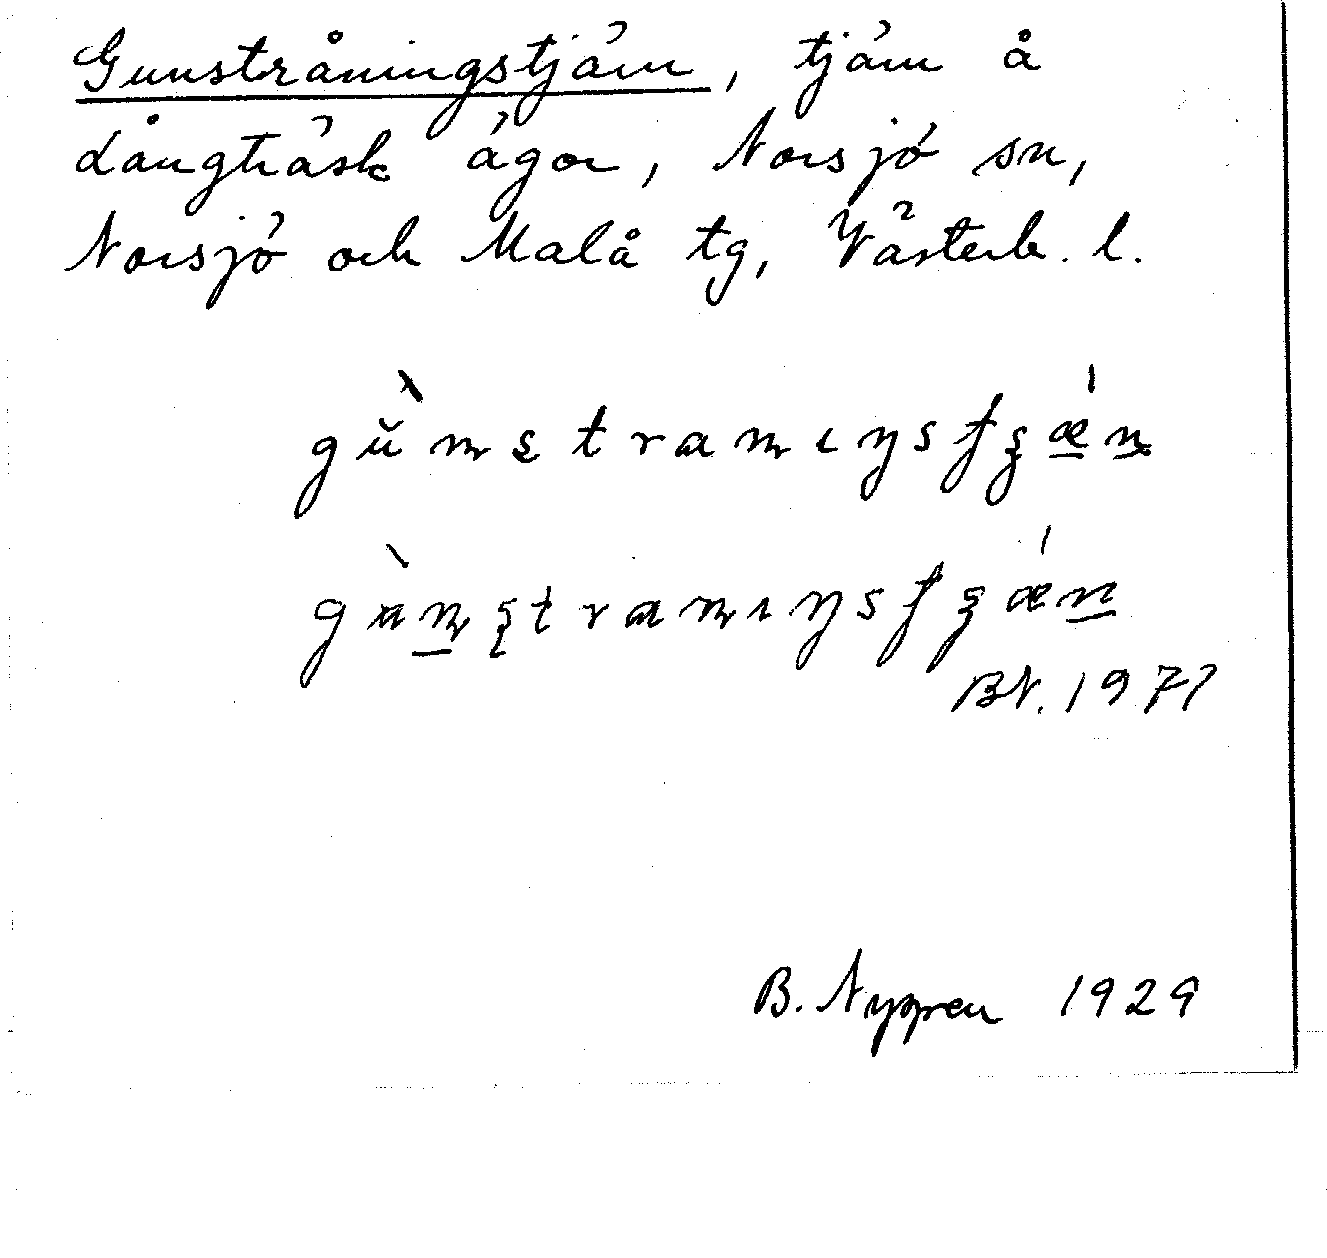 Gunstråningstjärn, tjärn å
Långträsk ägor, Norsjö sn,
Norsjö och Malå tg, Västerb. l.
BN. 1971
B. Nygren 1929